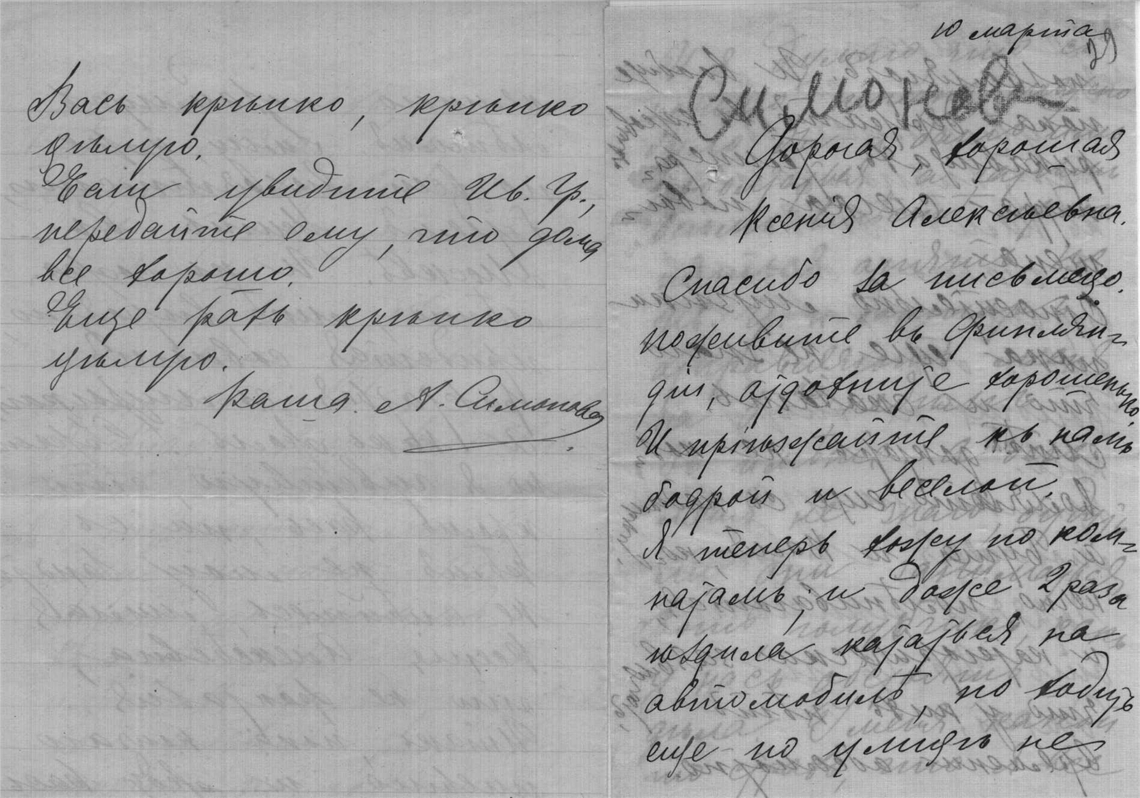 Васъ крѣпко, крѣпко
цѣлую.
Если увидите Ив. Гр.,
передайте ему, что дома
все хорошо.
Еще разъ крѣпко
цѣлую.
Ваша А. Симонова.
10 марта
29
Симонов
Дорогая, хорошая
Ксенія Алексѣевна.
Спасибо за письмецо.
поживите въ Финлян=
діи, отдохните хорошенько
И пріѣзжайте къ намъ
бодрой и веселой.
Я теперь хожу по ком=
натамъ, и даже 2 раза
ѣздила кататься на
автомобилѣ, но ходить
еще по улицѣ не